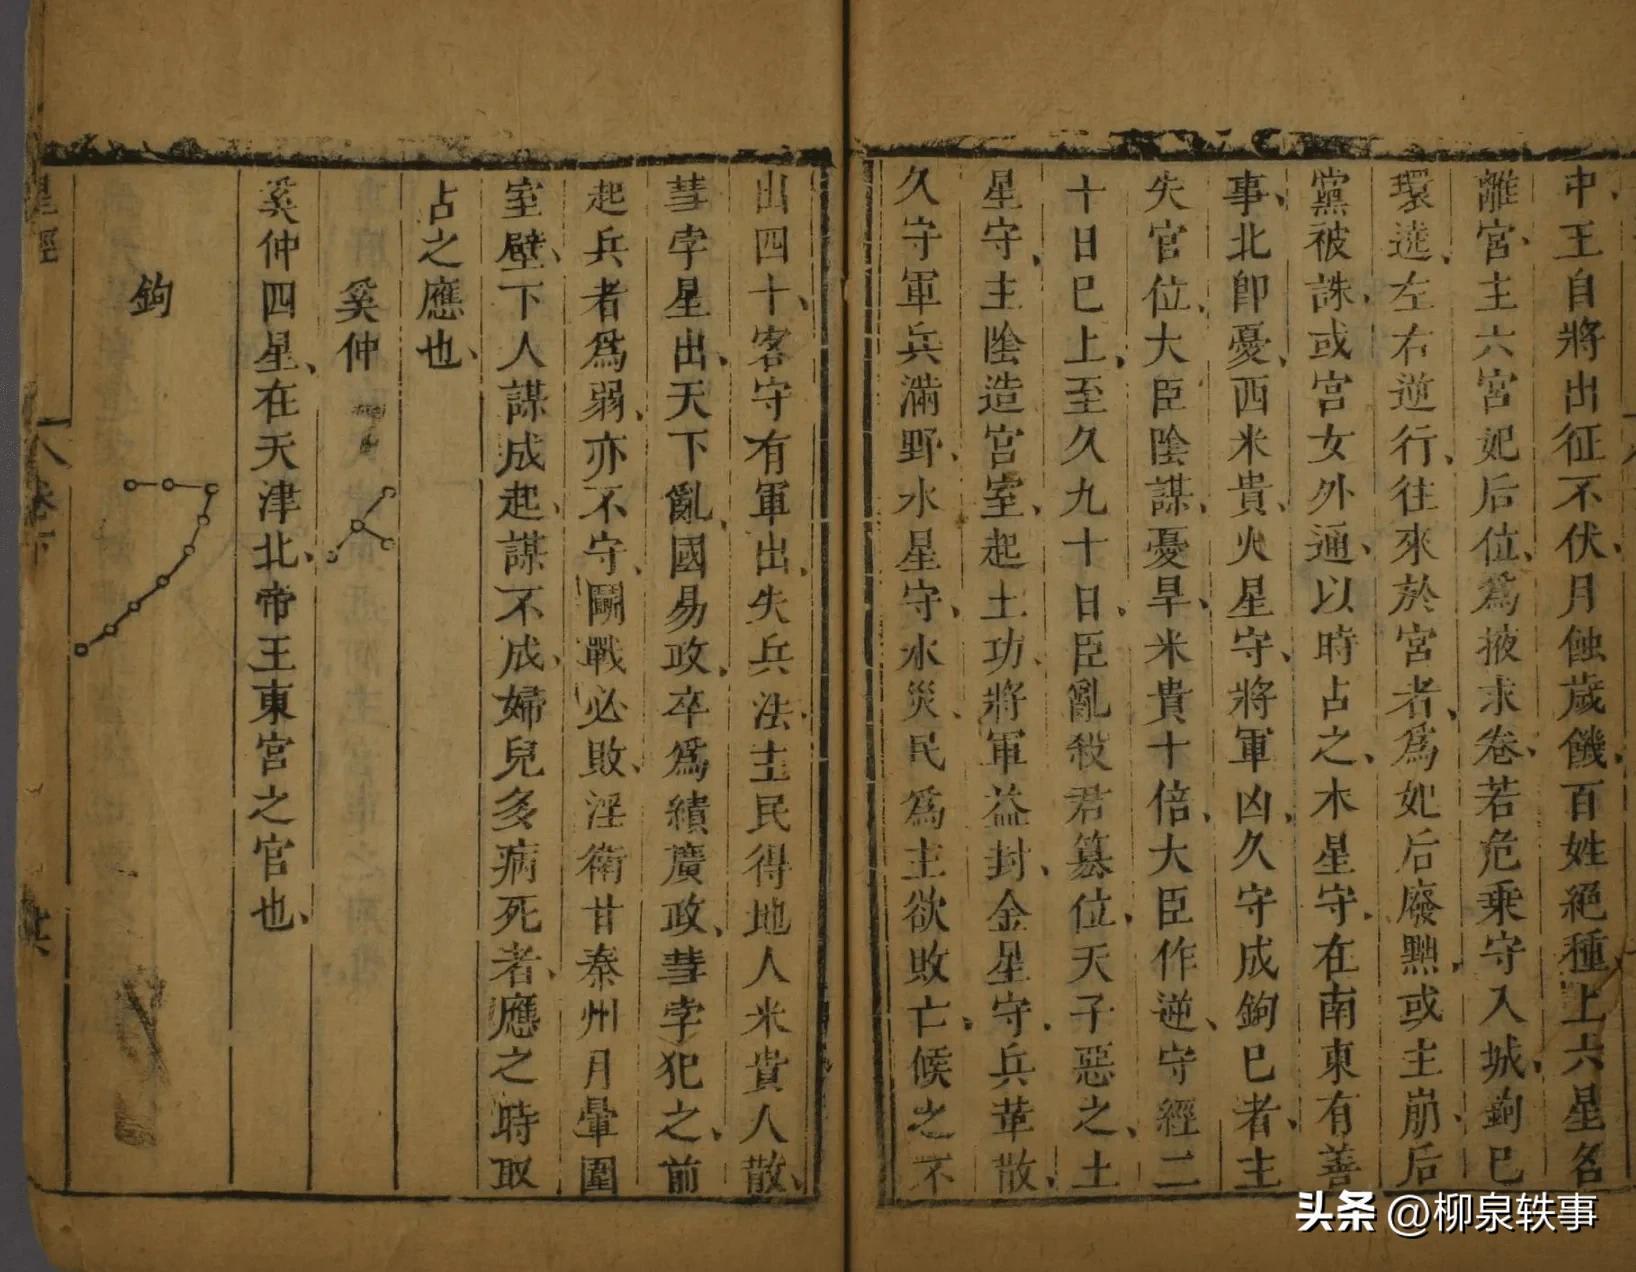 中王自將出征不伏月蝕歲饑百姓絕種上六星名
離宮主六宮妃后位爲掖求卷若危乗守入城鉤巳
環遶左右逆行往來於宮者爲妃后廢黜或主崩后
黨被誅或宮女外通以時占之木星守在南東有善
事北卽憂西米貴火星守將軍凶久守成鉤巳者主
失官位大臣陰謀憂旱米貴十倍大臣作逆守經二
十日巳上至久九十日臣亂殺君簒位天子惡之土
星守主陰造宮室起土功將軍益封金星守兵革散
久守軍兵滿野水星守水災民爲主欲敗亡候之不
出四十客守有軍出失兵法主民得地人米貴人散
彗孛星出天下亂國易政卒爲績廣政彗孛犯之前
起兵者爲弱亦不守鬭戰必敗淫衛甘秦州月暈圍
室壁下人謀成起謀不成婦兒多病死者應之時取
占之應也
奚仲
奚仲四星在天津北帝王東宮之官也
鉤
星經
卷下
头条 @柳泉轶事